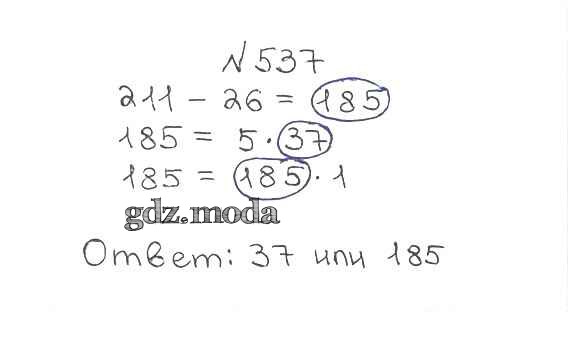 №537
211 - 26 = 185
185 = 5 · 37
185 = 185 · 1
gdz.moda
Ответ: 37 или 185